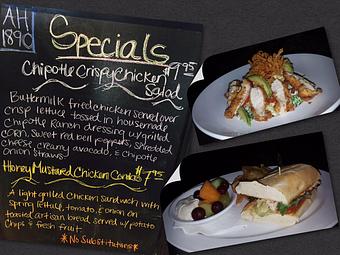 AH
1890
Specials
Chipotle Crispy Chicken $9.95
Salad
Buttermilk fried chicken served over
crisp lettuce tossed in housemade
Chipotle Ranch dressing w/grilled
corn, Sweet red bell peppers, shredded
cheese, creamy avacado, & chipotle
onion straws
Honey Mustard Chicken Combo $7.95
A light grilled chicken sandwich with
spring lettuce, tomato, & onion on
toasted artisan bread, served w/ potato
chips & fresh fruit.
*No Substitutions*